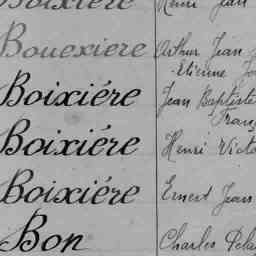 Boixiére Henri Jean
Bouexiere Arthur Jean
Etienne
Boixiére Jean Baptiste
Boixiére Henri
Boixiére Ernest Jean
Bon Charles